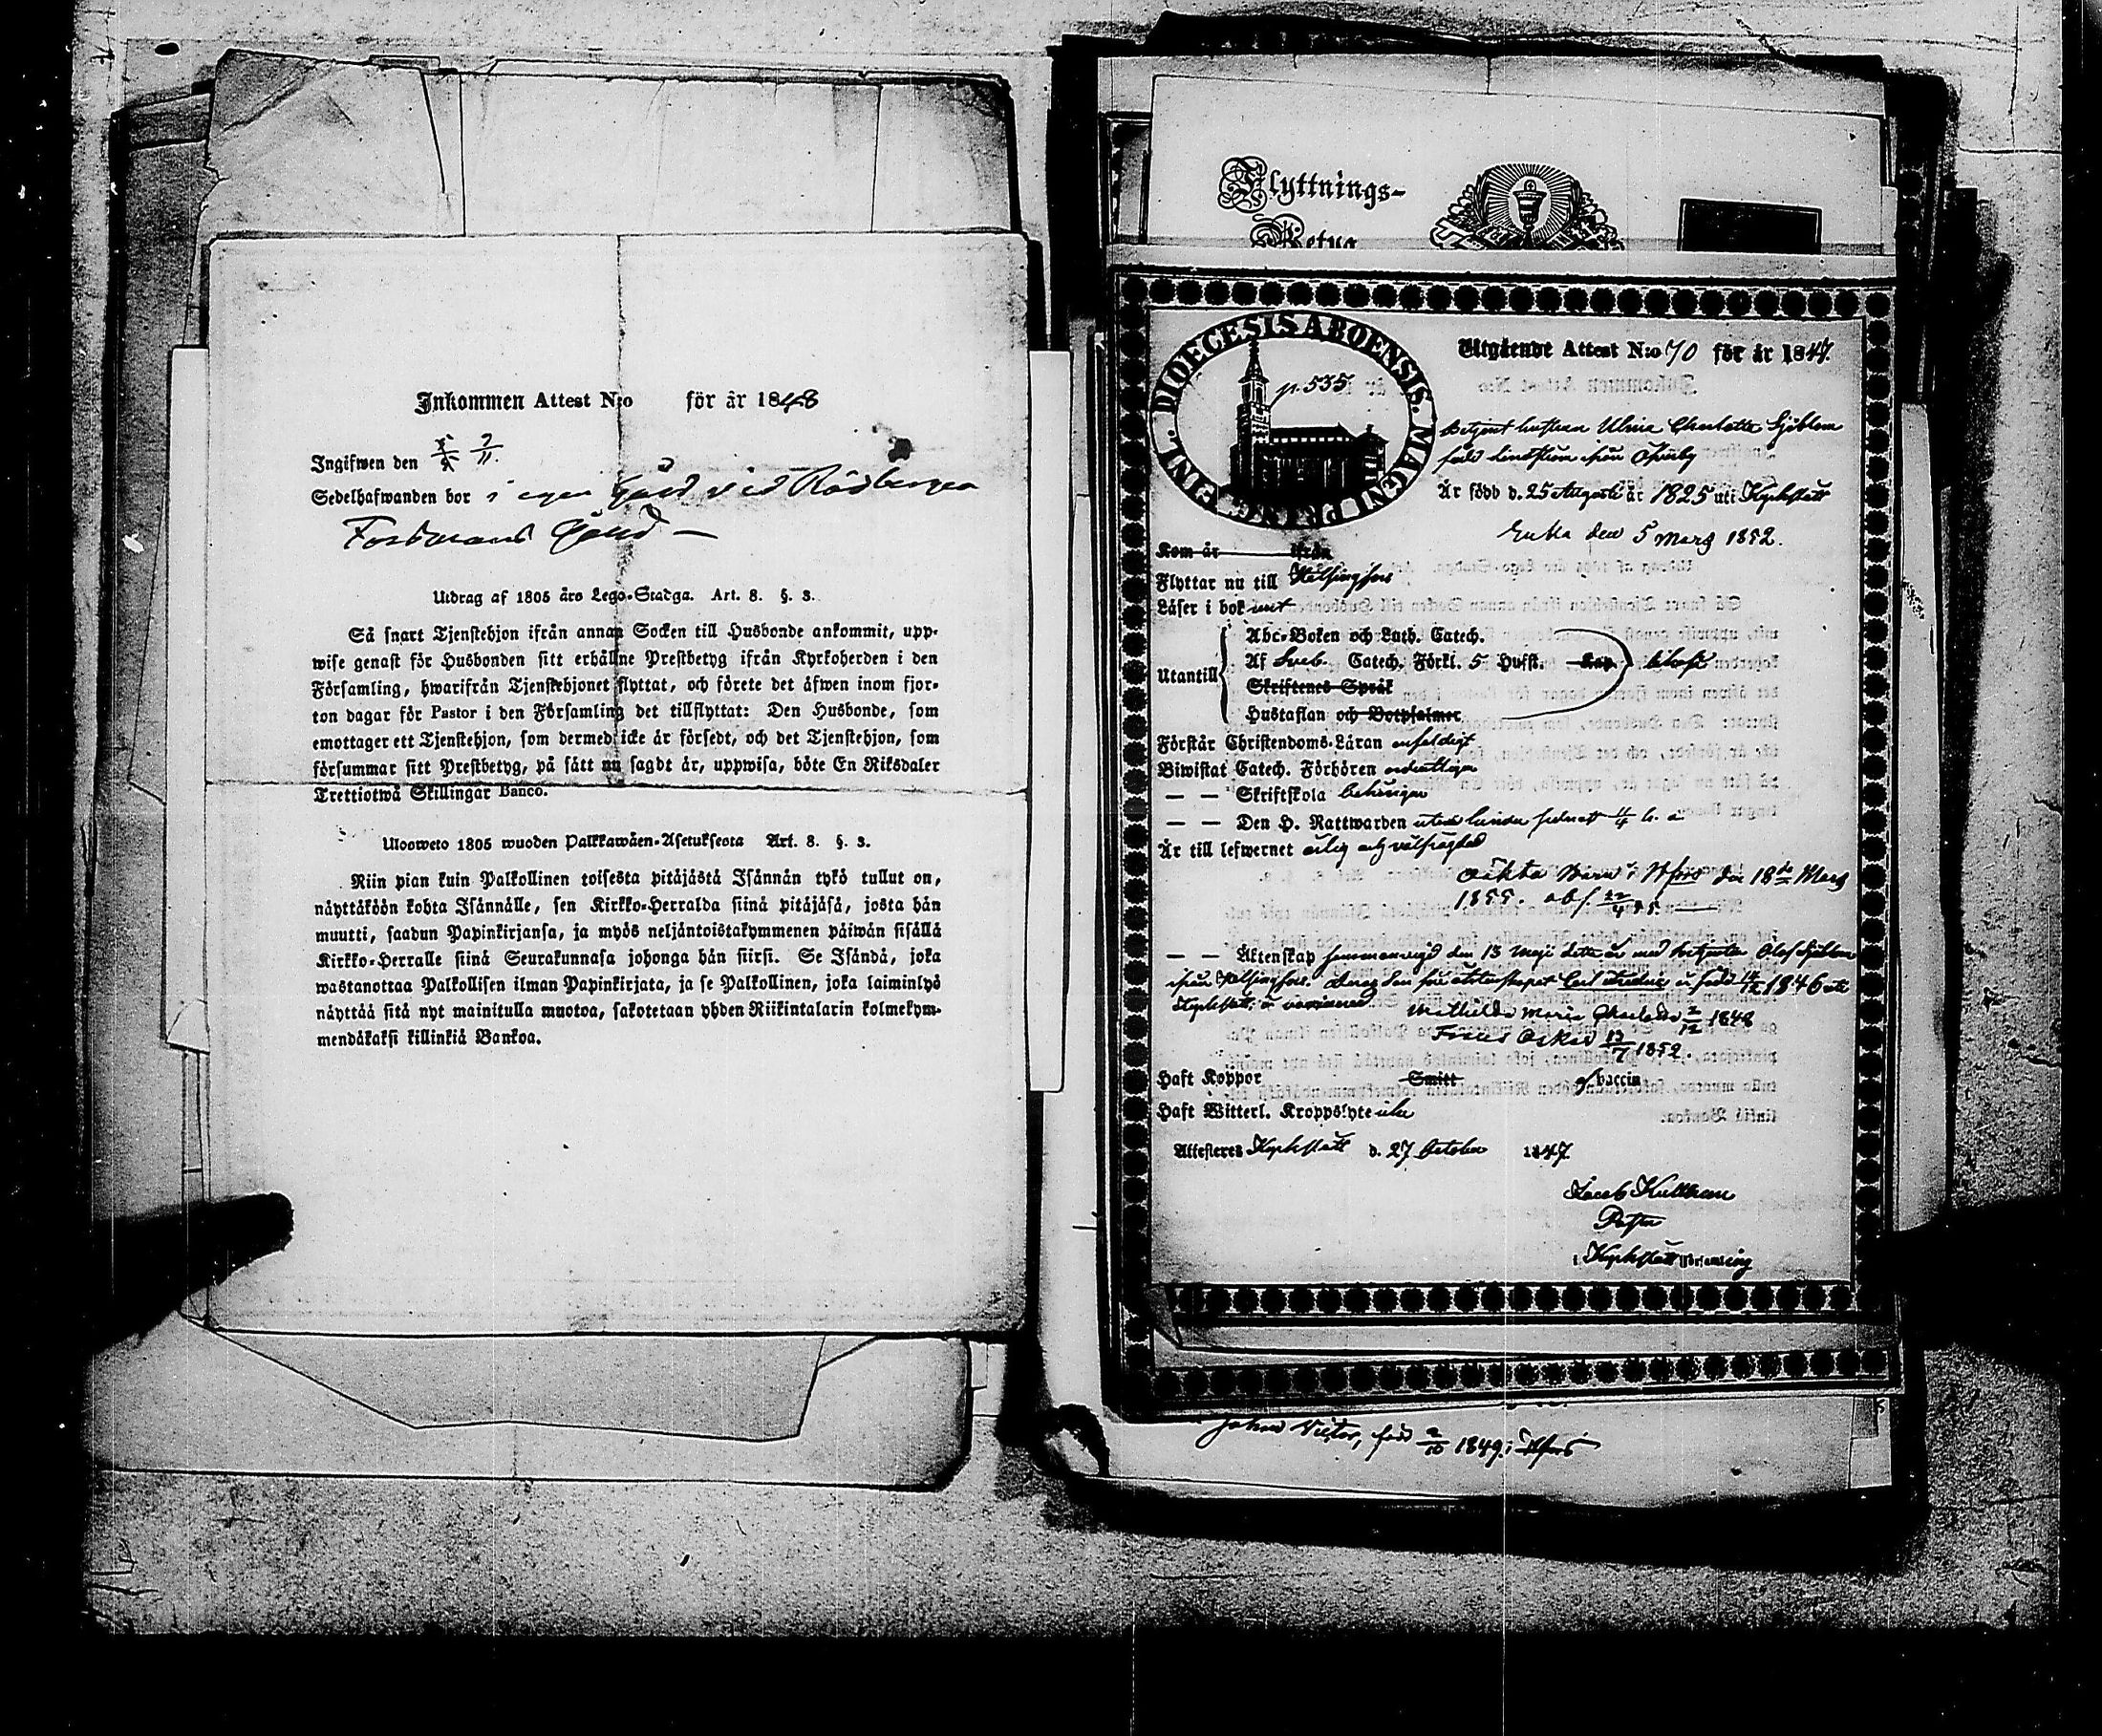 Inkommen Attest N:o för år 1848
Ingifwen den 7/11.
Sedelhafwanden bor i egen Gård vid Rödbergen
Forsmans Gård —
Utdrag af 1805 års Lego-Stadga. Art. 8. §. 3.
Så snart Tjenstehjon ifrån annan Socken till Husbonde ankommit, upp-
wise genast för Husbonden sitt erhållne Prestbetyg ifrån Kyrkoherden i den
Församling, hwarifrån Tjenstehjonet flyttat, och förete det äfwen inom fjor-
ton dagar för Pastor i den Församling det tillflyttat: Den Husbonde, som
emottager ett Tjenstehjon, som dermed icke är försedt, och det Tjenstehjon, som
försummar sitt Prestbetyg, på sätt nu sagdt är, uppwisa, böte En Riksdaler
Trettiotwå Skillingar Banco.
Ulosweto 1805 wuoden Palkkawäen-Asetuksesta Art. 8. §. 3.
Niin pian kuin Palkollinen toisesta pitäjästä Isännän tykö tullut on,
näyttäköön kohta Isännälle, sen Kirkko-Herralda siinä pitäjäsä, josta hän
muutti, saadun Papinkirjansa, ja myös neljäntoistakymmenen päiwän sisällä
Kirkko-Herralle siinä Seurakunnasa johonga hän siirsi. Se Isändä, joka
wastanottaa Palkollisen ilman Papinkirjata, ja se Palkollinen, joka laiminlyö
näyttää sitä nyt mainitulla muotoa, sakotetaan yhden Riikintalarin kolmekym-
mendäkaksi killinkiä Bankoa.
Flyttnings-
Betyg
DIOECESIS ABOENSIS. MAGNI PRINC. FINL.
p. 535
Utgående Attest N:o 70 för år 1847.
Betjent hustrun Ulrica Charlotta Sjöblom
född
Är född d. 25 Augusti år 1825 uti Kyrkslätt
Enka den 5 Mars 1852.
Kom år ifrån
Flyttar nu till Helsingfors
Läser i bok
Utantill
Abc-Boken och Luth. Catech.
Af Sveb. Catech. Förkl. 5 Hufst. Kap.
Skriftenes Språk
Hustaflan och Botpsalmer
Förstår Christendoms-Läran enfaldigt
Biwistat Catech. Förhören ordentligen
— — Skriftskola behörigen
— — Den H. Nattwarden utan hinder senast 11/4 h. a.
Är till lefwernet ärlig och välfrägdad
oäkta Barn i Hfors den 18de Mars
1855. abs. 22/4 55. —
— — Äktenskap sammanvigd den 13 Maji detta år med betjenten Olof Sjöblom
ifrån Helsingfors. född 14/12 1846 uti
Kyrkslätt, är vaccinerad. Mathilda Maria Charlotta 2/12 1848
Frans Oskar 13/7 1852.
Haft Koppor Smitt vaccin
Haft Witterl. Kroppslyte icke
Attesteres Kyrkslätt d. 27 October 1847
Jacob Kullhem
Pastor
i Kyrkslätt församling
Johan Victor, född 2/10 1849 i Hfors